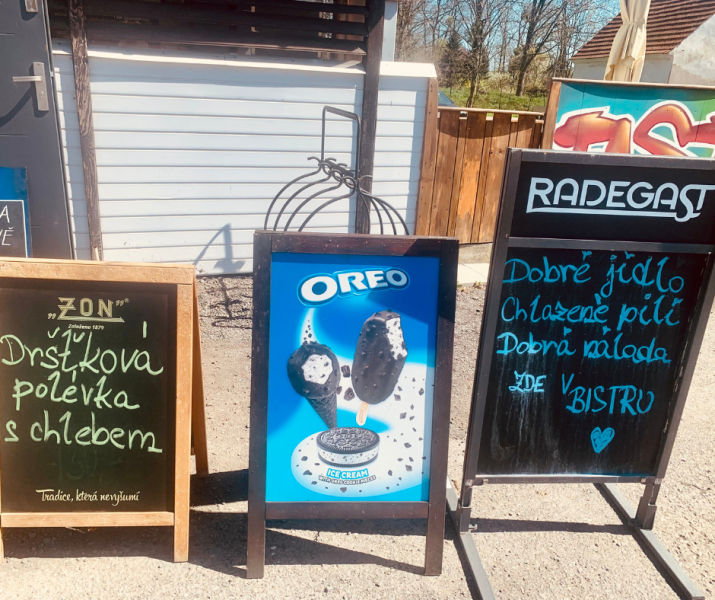 A
Ě
„ZON"®
Založeno 1879
Dršťková
polévka
s chlebem
Tradice, která nevyšumí
OREO
OREO
ICE CREAM
WITH OREO COOKIE PIECES
RADEGAST
Dobré jídlo
Chlazené pití
Dobrá nálada
ZDE V
BISTRU